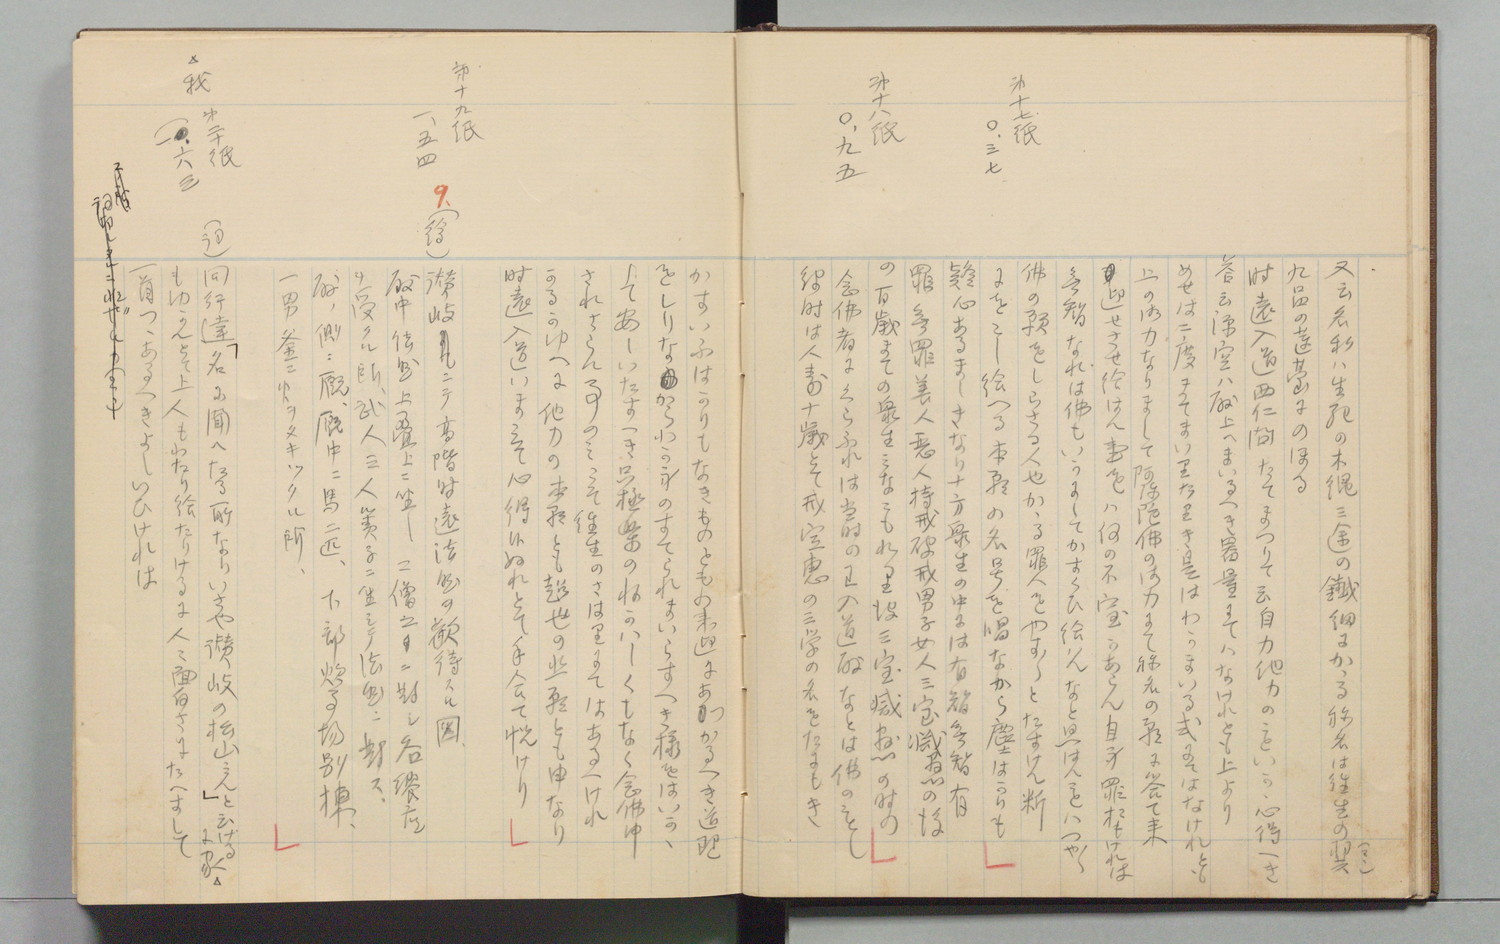 第十七紙
〇、三七
第十八紙
〇、九五
又云名利ハ生死の木縄三途の鐵細にかゝる称名は往生の翼
九品の蓮臺にのほる
時遠入道西仁間たてまつりて云自力他力のこといかゝ心得へき
答云源空ハ殿上へまいるへき器量にてハなけれとも上より
めせは二度まてまいりたりき是はわかまいる式にてはなけれとも
上の御力なりまして阿弥陀佛の御力にて称名の願に答て来
迎せさせ給はん事をハ何の不審かあらん自身罪おもけれは
無智なれは佛もいかにしてかすくひ給はんなと思はんをハつやく
佛の願をしらさる人也かゝる罪人をやすくとたすけん断
にをこし給へる本願の名号を唱なから塵はかりも
疑心あるましきなり十方衆生の中には有智無智有
罪無罪善人悪人持戒破戒男子女人三宝滅盡の後
の百歳まての衆生みなこもれり彼三宝滅盡の時の
念佛者にくらふれは当時の入道殿なとは佛のことし
彼時は人壽十歳とて戒定恵の三学の名をたにもき
第十九紙
一、五四
かすいふはかりもなきものともの来迎にあつかるへき道理
をしりなからわか身のすてられまいらすへき様をはいかゝ
して安しいたすへき只極楽のねかハしくもなく念佛申
されさらん事のみこそ往生のさはりにてはあるへけれ
かるかゆへに他力の本願とも超世の悲願とも申なり
時遠入道いまこそ心得候ぬれとて手合て悦けり
9.
(絵)
讃岐ニテ高階時遠法然の歓待スル圖、
殿中法然上畳上ニ坐し 二僧之ニ對シ 各饗応
ヲ受クル所、武人三人簀子ニ坐シテ法然ニ對ス、
殿ノ側ニ厩、厩中ニ馬二匹、下部炊く場別棟、
一男釜ニ火ヲタキツクル所、
我 第二十紙
一、六三
(詞)
同行達「名に聞へたる所なりいさや讃岐の松山みんと云ける
もゆかんとて上人もわたり給たりけるに人々面白さにたへすして
一首つゝあるへきよしいひけれは